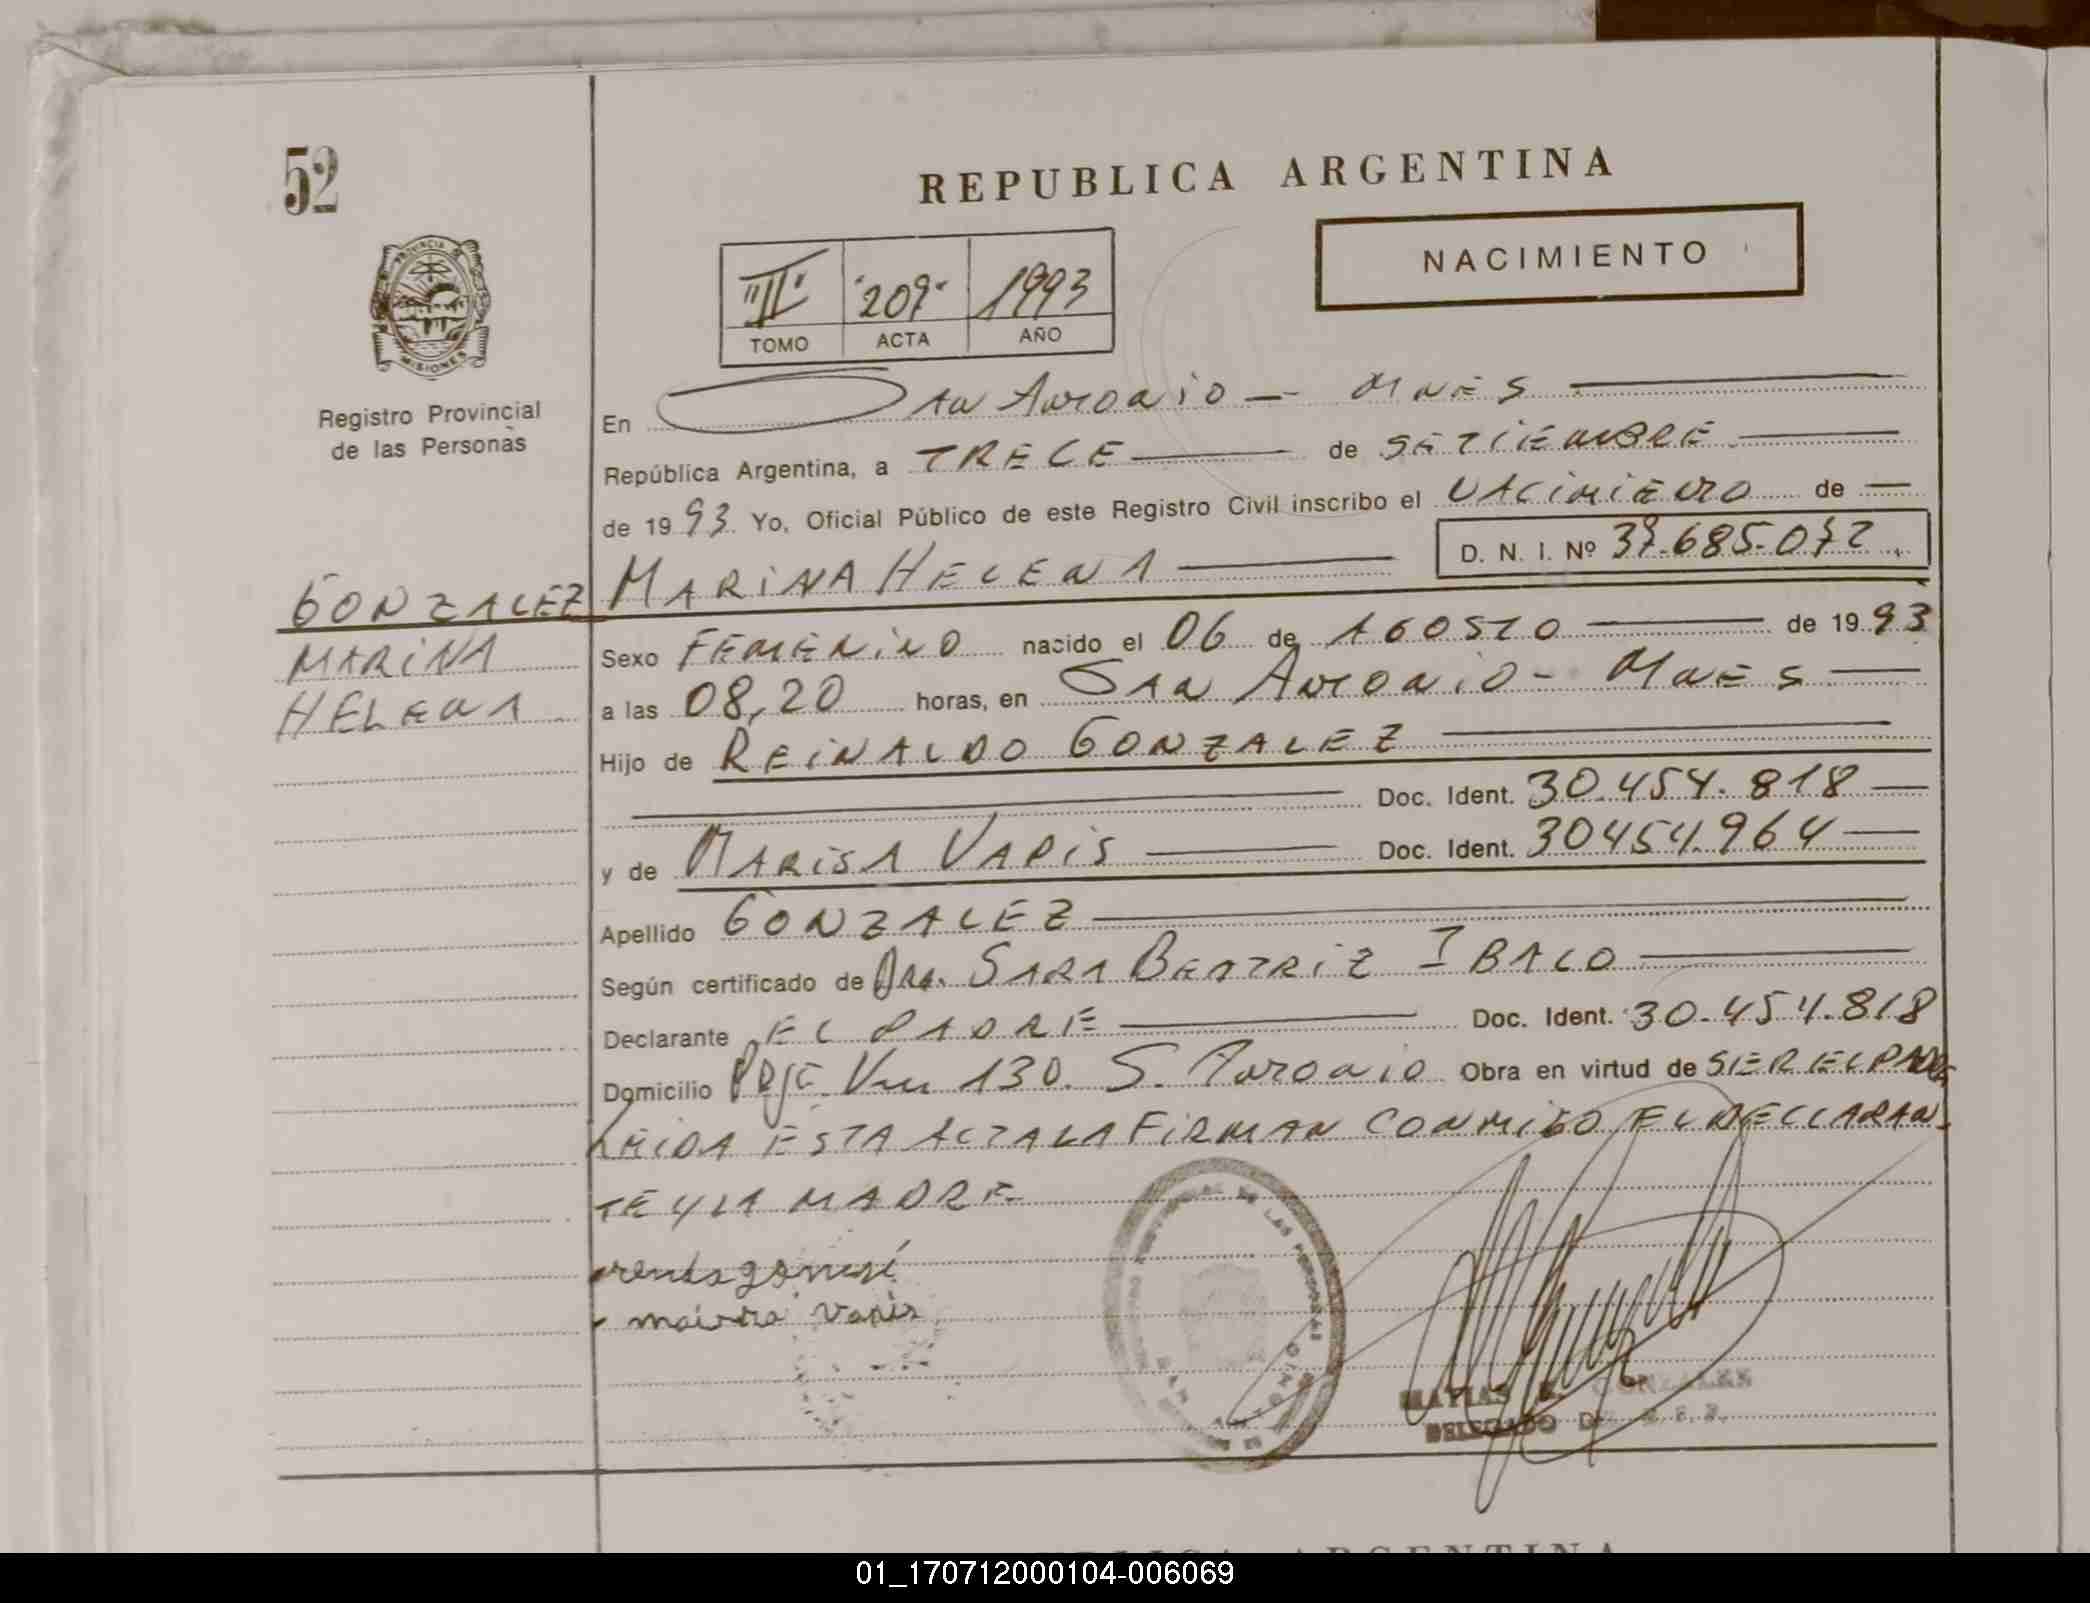 52
REPUBLICA ARGENTINA
NACIMIENTO
"III" "209" 1993
TOMO ACTA AÑO
PROVINCIA
MISIONES
Registro Provincial
de las Personas
En San Antonio — Mnes
República Argentina, a TRECE de SETIEMBRE
de 1993. Yo, Oficial Público de este Registro Civil inscribo el NACIMIENTO de
MARINA HELENA D. N. I. Nº
GONZALEZ
MARINA
HELENA
Sexo FEMENINO nacido el 06 de AGOSTO de 1993
a las 08,20 horas, en SAN ANTONIO - Mnes
Hijo de REINALDO GONZALEZ
Doc. Ident. 30.454.818
y de MARISA VARIS Doc. Ident. 30454.964
Apellido GONZALEZ
Según certificado de Dra. SARA BEATRIZ IBALO
Declarante EL PADRE Doc. Ident. 30.454.818
Domicilio 130. S. Antonio Obra en virtud de SER EL PADRE
LEIDA ESTA ACTA LA FIRMAN CONMIGO EL DECLARAN-
TE Y LA MADRE
MATIAS
DELEGADO
REPUBLICA ARGENTINA
01_170712000104-006069